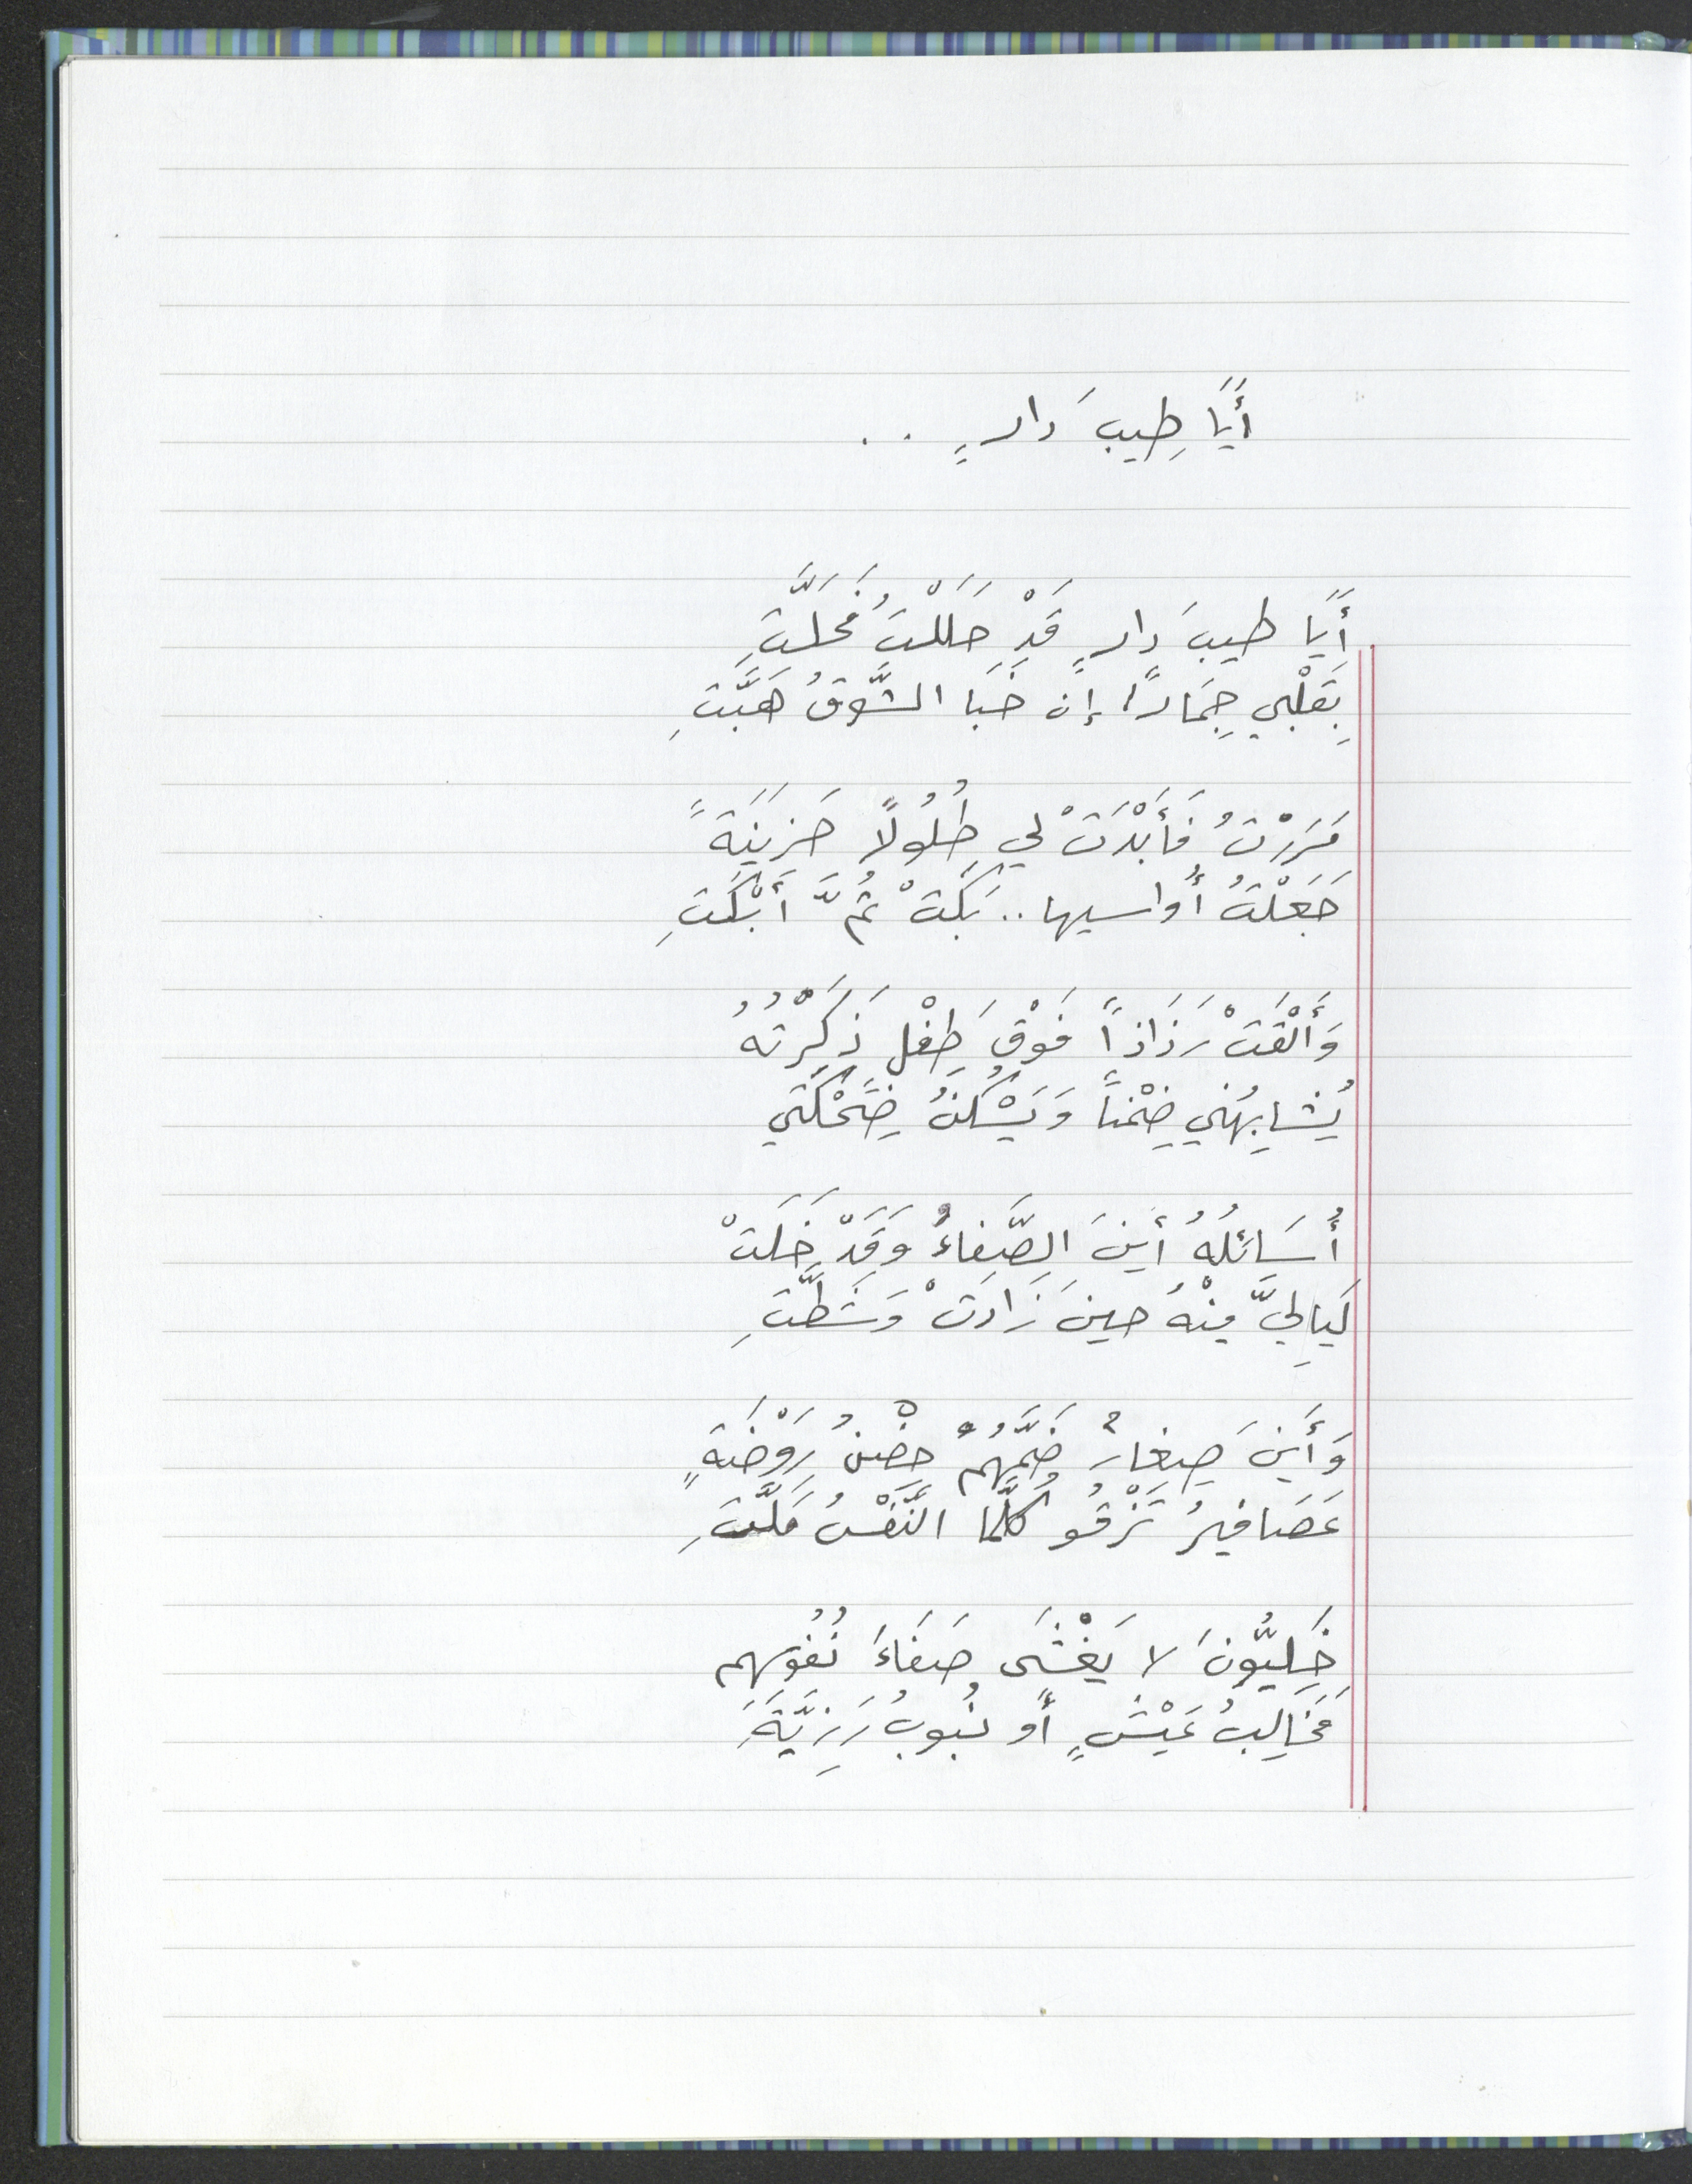 أَيَا طِيبَ دارٍ ..
أَيَا طيبَ دارٍ قَدْ حَلَلْتُ فَحَلَّتِ
بِقَلْبي جِمَاراً إن خَبَا الشَّوقُ هَبَّتِ
مَرَرْتُ فَأَبْدَتْ لي طُلُولًا حَزِينَةً
جَعَلْتُ أُواسيها .. بَكَتْ ثُمَّ أَبْكَتِ
وَأَلْقَتْ رَذَاذاً فَوْقَ طِفْلٍ ذَكَرْتُهُ
يُشابِهُني ضِمْناً وَيَسْكُنُ ضِحْكَتي
أُسَائِلُهُ أينَ الصَّفاءُ وَقَدْ خَلَتْ
لَيالِيَّ مِنْهُ حينَ زَادَتْ وَشَطَّتِ
وَأَينَ صِغارٌ ضَمَّهُمْ حِضْنُ رَوْضَةٍ
عَصَافيرُ تَزْقُو كُلَّما النَّفْسُ مَلَّتِ
خَلِيُّونَ لا يَغْشَى صَفَاءَ نُفُوسِهم
مَخَالِبُ عَيْشٍ أو نُيُوبُ رَزِيَّةِ